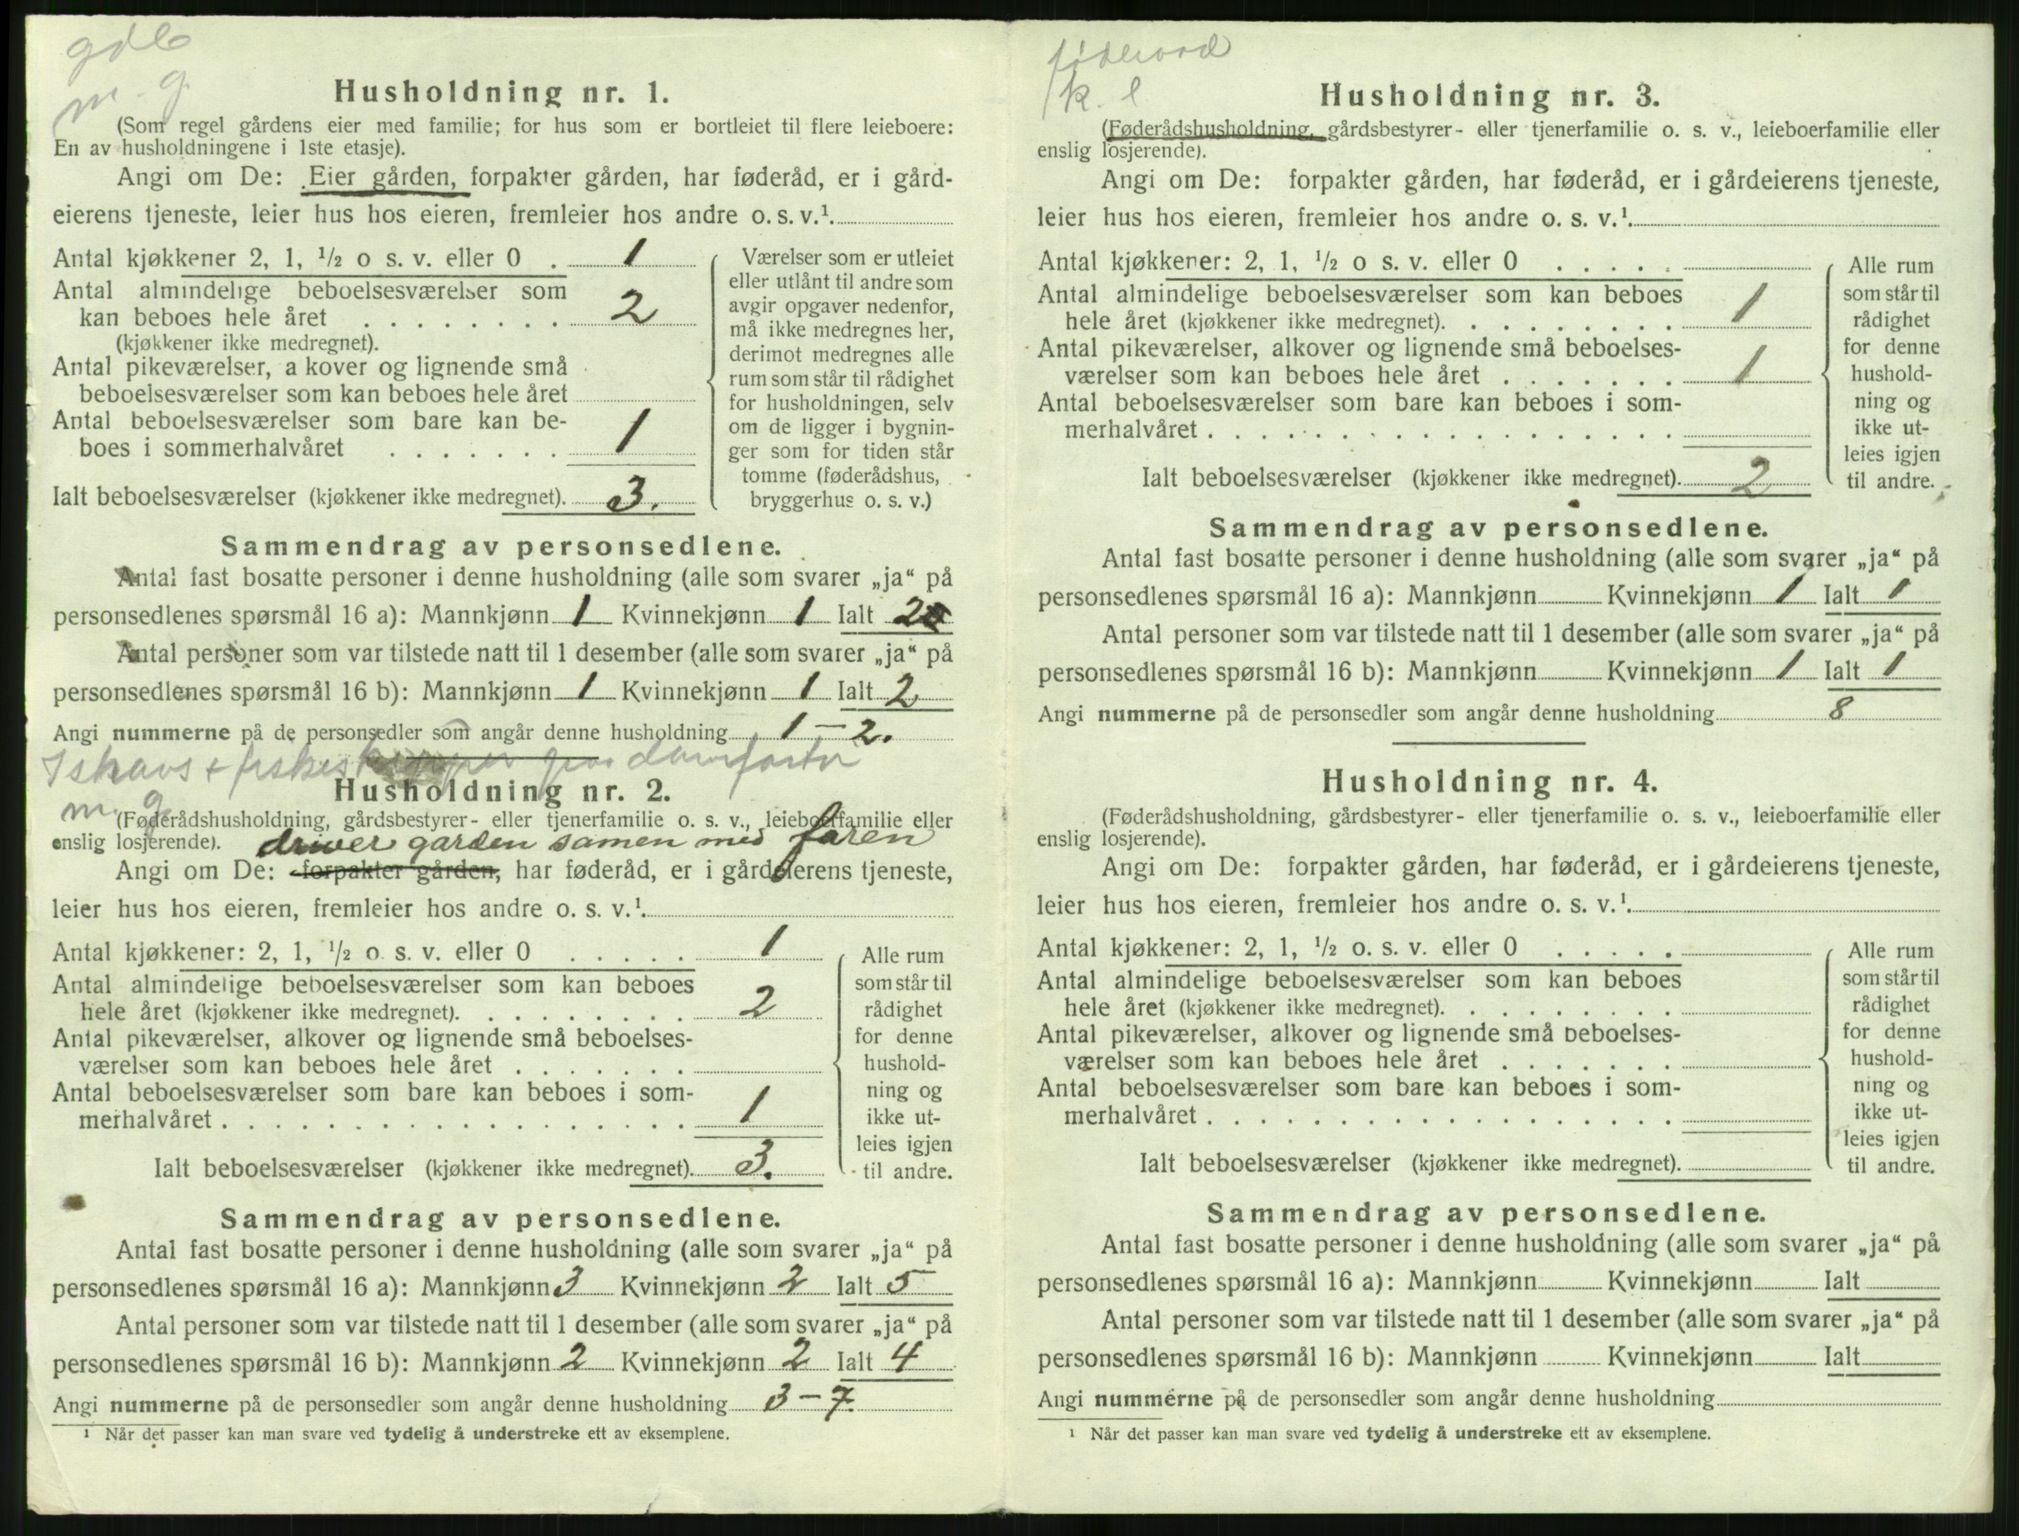 gdb
m. g.
Husholdning nr. 1.
(Som regel gårdens eier med familie; for hus som er bortleiet til flere leieboere:
En av husholdningene i 1ste etasje).
Angi om De: Eier gården, forpakter gården, har føderåd, er i gård-
eierens tjeneste, leier hus hos eieren, fremleier hos andre o. s. v.¹
Antal kjøkkener 2, 1, ¹/₂ o s. v. eller 0 . 1
Antal almindelige beboelsesværelser som
kan beboes hele året . . . . . . . . 2
(kjøkkener ikke medregnet).
Antal pikeværelser, a kover og lignende små
beboelsesværelser som kan beboes hele året
Antal beboelsesværelser som bare kan be-
boes i sommerhalvåret . . . . . . . 1
Ialt beboelsesværelser (kjøkkener ikke medregnet). 3.
Værelser som er utleiet
eller utlånt til andre som
avgir opgaver nedenfor,
må ikke medregnes her,
derimot medregnes alle
rum som står til rådighet
for husholdningen, selv
om de ligger i bygnin-
ger som for tiden står
tomme (føderådshus,
bryggerhus o. s. v.)
Sammendrag av personsedlene.
Antal fast bosatte personer i denne husholdning (alle som svarer „ja“ på
personsedlenes spørsmål 16 a): Mannkjønn 1 Kvinnekjønn 1 Ialt 2
Antal personer som var tilstede natt til 1 desember (alle som svarer „ja“ på
personsedlenes spørsmål 16 b): Mannkjønn 1 Kvinnekjønn 1 Ialt 2
Angi nummerne på de personsedler som angår denne husholdning 1 — 2.
Ishavs + fiskeskipper
Husholdning nr. 2.
m. g.
(Føderådshusholdning, gårdsbestyrer- eller tjenerfamilie o. s. v., leieboerfamilie eller
enslig losjerende). driver garden samen med faren
Angi om De: forpakter gården, har føderåd, er i gårdeierens tjeneste,
leier hus hos eieren, fremleier hos andre o. s. v.¹
Antal kjøkkener: 2, 1, ¹/₂ o. s. v. eller 0 . . . . . 1
Antal almindelige beboelsesværelser som kan beboes
hele året (kjøkkener ikke medregnet). . . . . . . . . 2
Antal pikeværelser, alkover og lignende små beboelses-
værelser som kan beboes hele året . . . . . . .
Antal beboelsesværelser som bare kan beboes i som-
merhalvåret . . . . . . . . . . . . . . . . . . 1
Ialt beboelsesværelser (kjøkkener ikke medregnet). 3.
Alle rum
som står til
rådighet
for denne
hushold-
ning og
ikke ut-
leies igjen
til andre.
Sammendrag av personsedlene.
Antal fast bosatte personer i denne husholdning (alle som svarer „ja“ på
personsedlenes spørsmål 16 a): Mannkjønn 3 Kvinnekjønn 2 Ialt 5
Antal personer som var tilstede natt til 1 desember (alle som svarer „ja“ på
personsedlenes spørsmål 16 b): Mannkjønn 2 Kvinnekjønn 2 Ialt 4
Angi nummerne på de personsedler som angår denne husholdning 3 — 7.
¹ Når det passer kan man svare ved tydelig å understreke ett av eksemplene.
føderaad
k. l
Husholdning nr. 3.
(Føderådshusholdning, gårdsbestyrer- eller tjenerfamilie o. s. v., leieboerfamilie eller
enslig losjerende).
Angi om De: forpakter gården, har føderåd, er i gårdeierens tjeneste,
leier hus hos eieren, fremleier hos andre o. s. v.¹
Antal kjøkkener: 2, 1, ¹/₂ o s. v. eller 0 . . . . .
Antal almindelige beboelsesværelser som kan beboes
hele året (kjøkkener ikke medregnet). . . . . . . . . 1
Antal pikeværelser, alkover og lignende små beboelses-
værelser som kan beboes hele året . . . . . . . 1
Antal beboelsesværelser som bare kan beboes i som-
merhalvåret . . . . . . . . . . . . . . . . . .
Ialt beboelsesværelser (kjøkkener ikke medregnet). 2
Alle rum
som står til
rådighet
for denne
hushold-
ning og
ikke ut-
leies igjen
til andre.
Sammendrag av personsedlene.
Antal fast bosatte personer i denne husholdning (alle som svarer „ja“ på
personsedlenes spørsmål 16 a): Mannkjønn Kvinnekjønn 1 Ialt 1
Antal personer som var tilstede natt til 1 desember (alle som svarer „ja“ på
personsedlenes spørsmål 16 b): Mannkjønn Kvinnekjønn 1 Ialt 1
Angi nummerne på de personsedler som angår denne husholdning 8
Husholdning nr. 4.
(Føderådshusholdning, gårdsbestyrer- eller tjenerfamilie o. s. v., leieboerfamilie eller
enslig losjerende).
Angi om De: forpakter gården, har føderåd, er i gårdeierens tjeneste,
leier hus hos eieren, fremleier hos andre o. s. v.¹
Antal kjøkkener: 2, 1, ¹/₂ o. s. v. eller 0 . . . . .
Antal almindelige beboelsesværelser som kan beboes
hele året (kjøkkener ikke medregnet). . . . . . . . .
Antal pikeværelser, alkover og lignende små beboelses-
værelser som kan beboes hele året . . . . . . .
Antal beboelsesværelser som bare kan beboes i som-
merhalvåret . . . . . . . . . . . . . . . . . .
Ialt beboelsesværelser (kjøkkener ikke medregnet).
Alle rum
som står til
rådighet
for denne
hushold-
ning og
ikke ut-
leies igjen
til andre.
Sammendrag av personsedlene.
Antal fast bosatte personer i denne husholdning (alle som svarer „ja“ på
personsedlenes spørsmål 16 a): Mannkjønn Kvinnekjønn Ialt
Antal personer som var tilstede natt til 1 desember (alle som svarer „ja“ på
personsedlenes spørsmål 16 b): Mannkjønn Kvinnekjønn Ialt
Angi nummerne på de personsedler som angår denne husholdning
¹ Når det passer kan man svare ved tydelig å understreke ett av eksemplene.